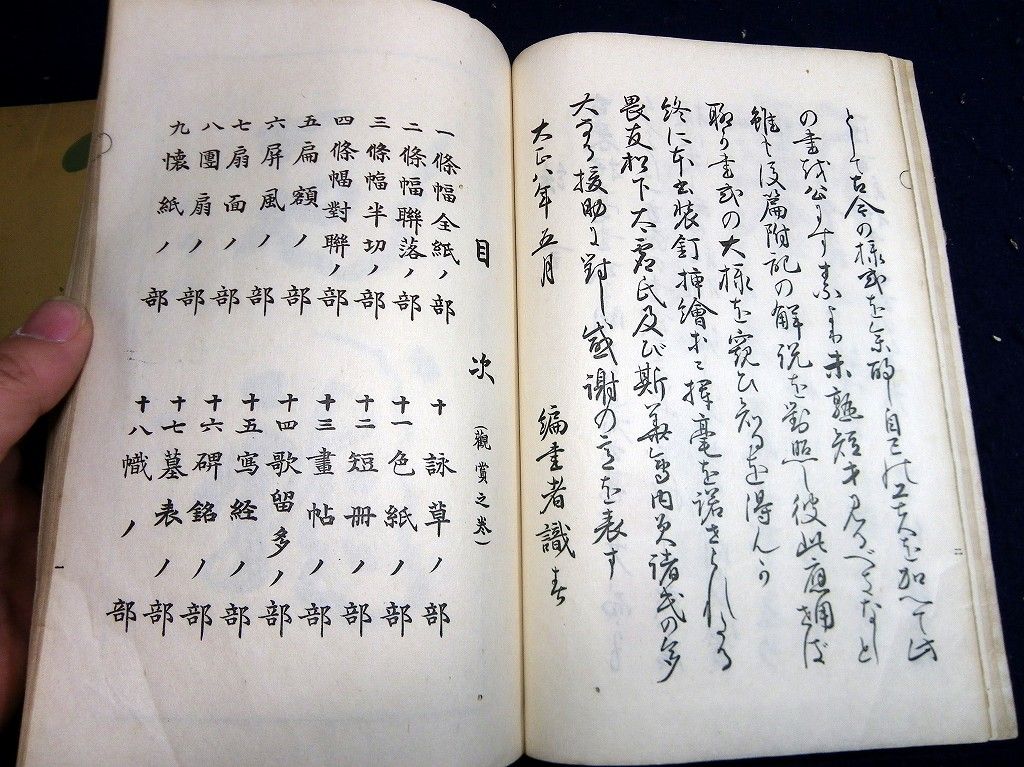 として古今の様式を参酌し自己の工夫を加へて此
の書を公にす素より未熟短才見るべきなしと
雖も後篇附記の解説を對照し彼此應用せば
聊か書式の大様を窺ひ知るを得んか
終に本書装釘挿繪等に揮毫を諾せられたる
畏友松下太君氏及び斯華會内員諸氏の多
大なる援助に對し感謝の意を表す
大正八年五月
編書者識
目次(觀賞之巻)
一條幅全紙ノ部
二條幅聯落ノ部
三條幅半切ノ部
四條幅對聯ノ部
五扁額ノ部
六屏風ノ部
七扇面ノ部
八團扇ノ部
九懐紙ノ部
十詠草ノ部
十一色紙ノ部
十二短冊ノ部
十三畫帖ノ部
十四歌留多ノ部
十五寫経ノ部
十六碑銘ノ部
十七墓表ノ部
十八幟ノ部
一
二